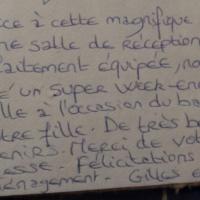 ce à cette magnifique
ne salle de réception
faitement équipée, no
é un super week-en
lle à l'occasion du ba
tre fille. De très b
enirs. Merci de vot
esse. Félicitations
énagement. Gilles e